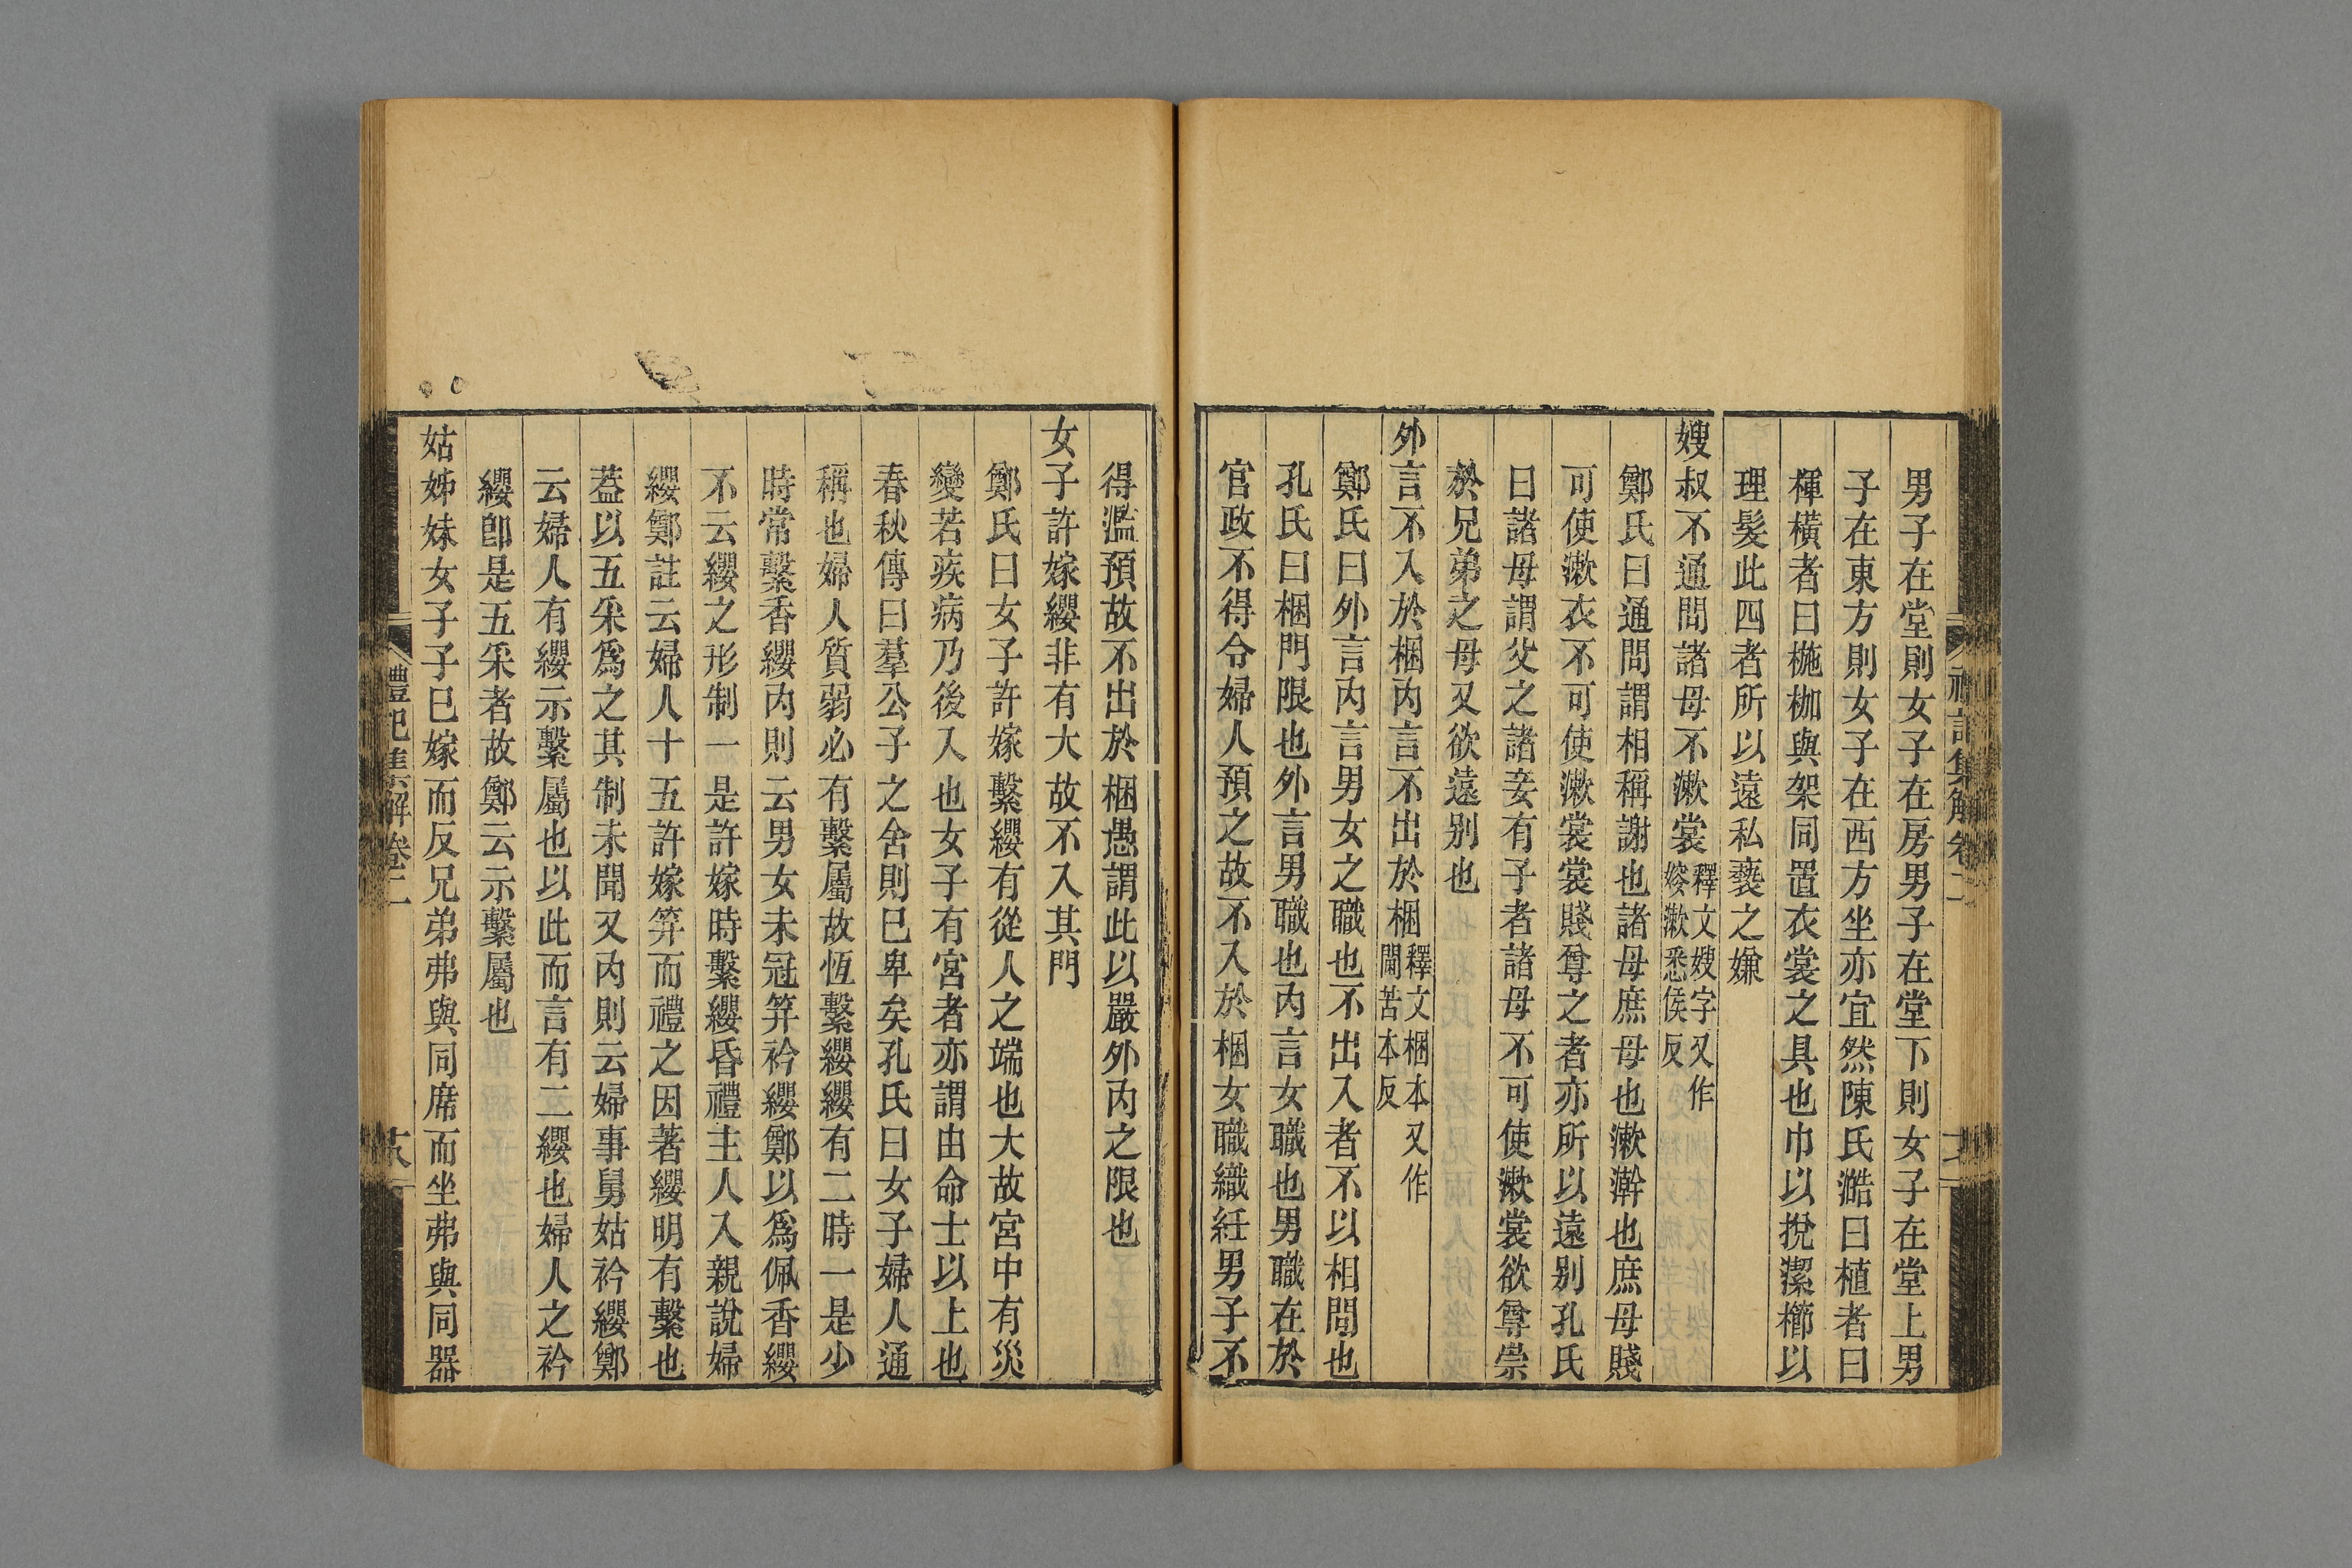 男子在堂則女子在房男子在堂下則女子在堂上男
子在東方則女子在西方坐亦宜然陳氏澔曰植者曰
楎橫者曰椸枷與架同置衣裳之具也巾以挩潔櫛以
理髮此四者所以遠私褻之嫌
嫂叔不通問諸母不漱裳釋文嫂字又作㛮漱悉侯反
鄭氏曰通問謂相稱謝也諸母庶母也漱澣也庶母賤
可使漱衣不可使漱裳裳賤尊之者亦所以遠别孔氏
曰諸母謂父之諸妾有子者諸母不可使漱裳欲尊崇
於兄弟之母又欲遠别也
外言不入於梱内言不出於梱釋文梱本又作閫苦本反
鄭氏曰外言内言男女之職也不出入者不以相問也
孔氏曰梱門限也外言男職也内言女職也男職在於
官政不得令婦人預之故不入於梱女職織紝男子不
得濫預故不出於梱愚謂此以嚴外内之限也
女子許嫁纓非有大故不入其門
鄭氏曰女子許嫁繫纓有從人之端也大故宮中有災
變若疾病乃後入也女子有宮者亦謂由命士以上也
春秋傳曰羣公子之舍則已卑矣孔氏曰女子婦人通
稱也婦人質弱必有繫屬故恆繫纓纓有二時一是少
時常繫香纓内則云男女未冠笄衿纓鄭以爲佩香纓
不云纓之形制一是許嫁時繫纓昏禮主人入親說婦
纓鄭註云婦人十五許嫁笄而禮之因著纓明有繫也
葢以五采爲之其制未聞又内則云婦事舅姑衿纓鄭
云婦人有纓示繫屬也以此而言有二纓也婦人之衿
纓卽是五采者故鄭云示繫屬也
姑姊妹女子子已嫁而反兄弟弗與同席而坐弗與同器
禮記集解卷二